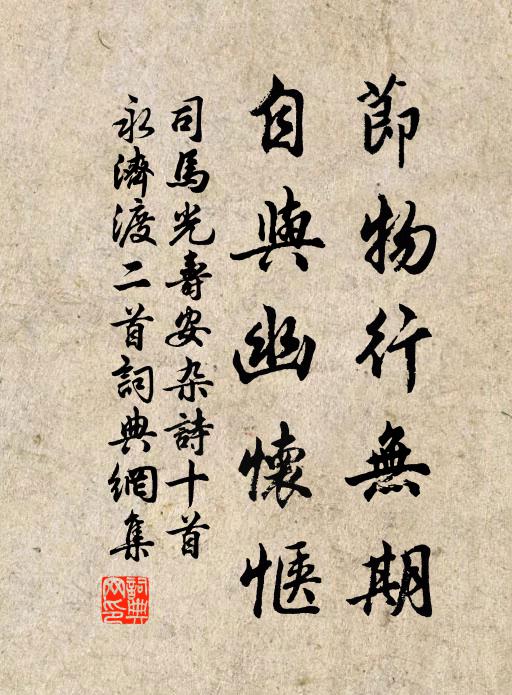 節物行無期
自與幽懷愜
司馬光壽安杂詩十首
永濟渡二首詞典網集
詞典网印